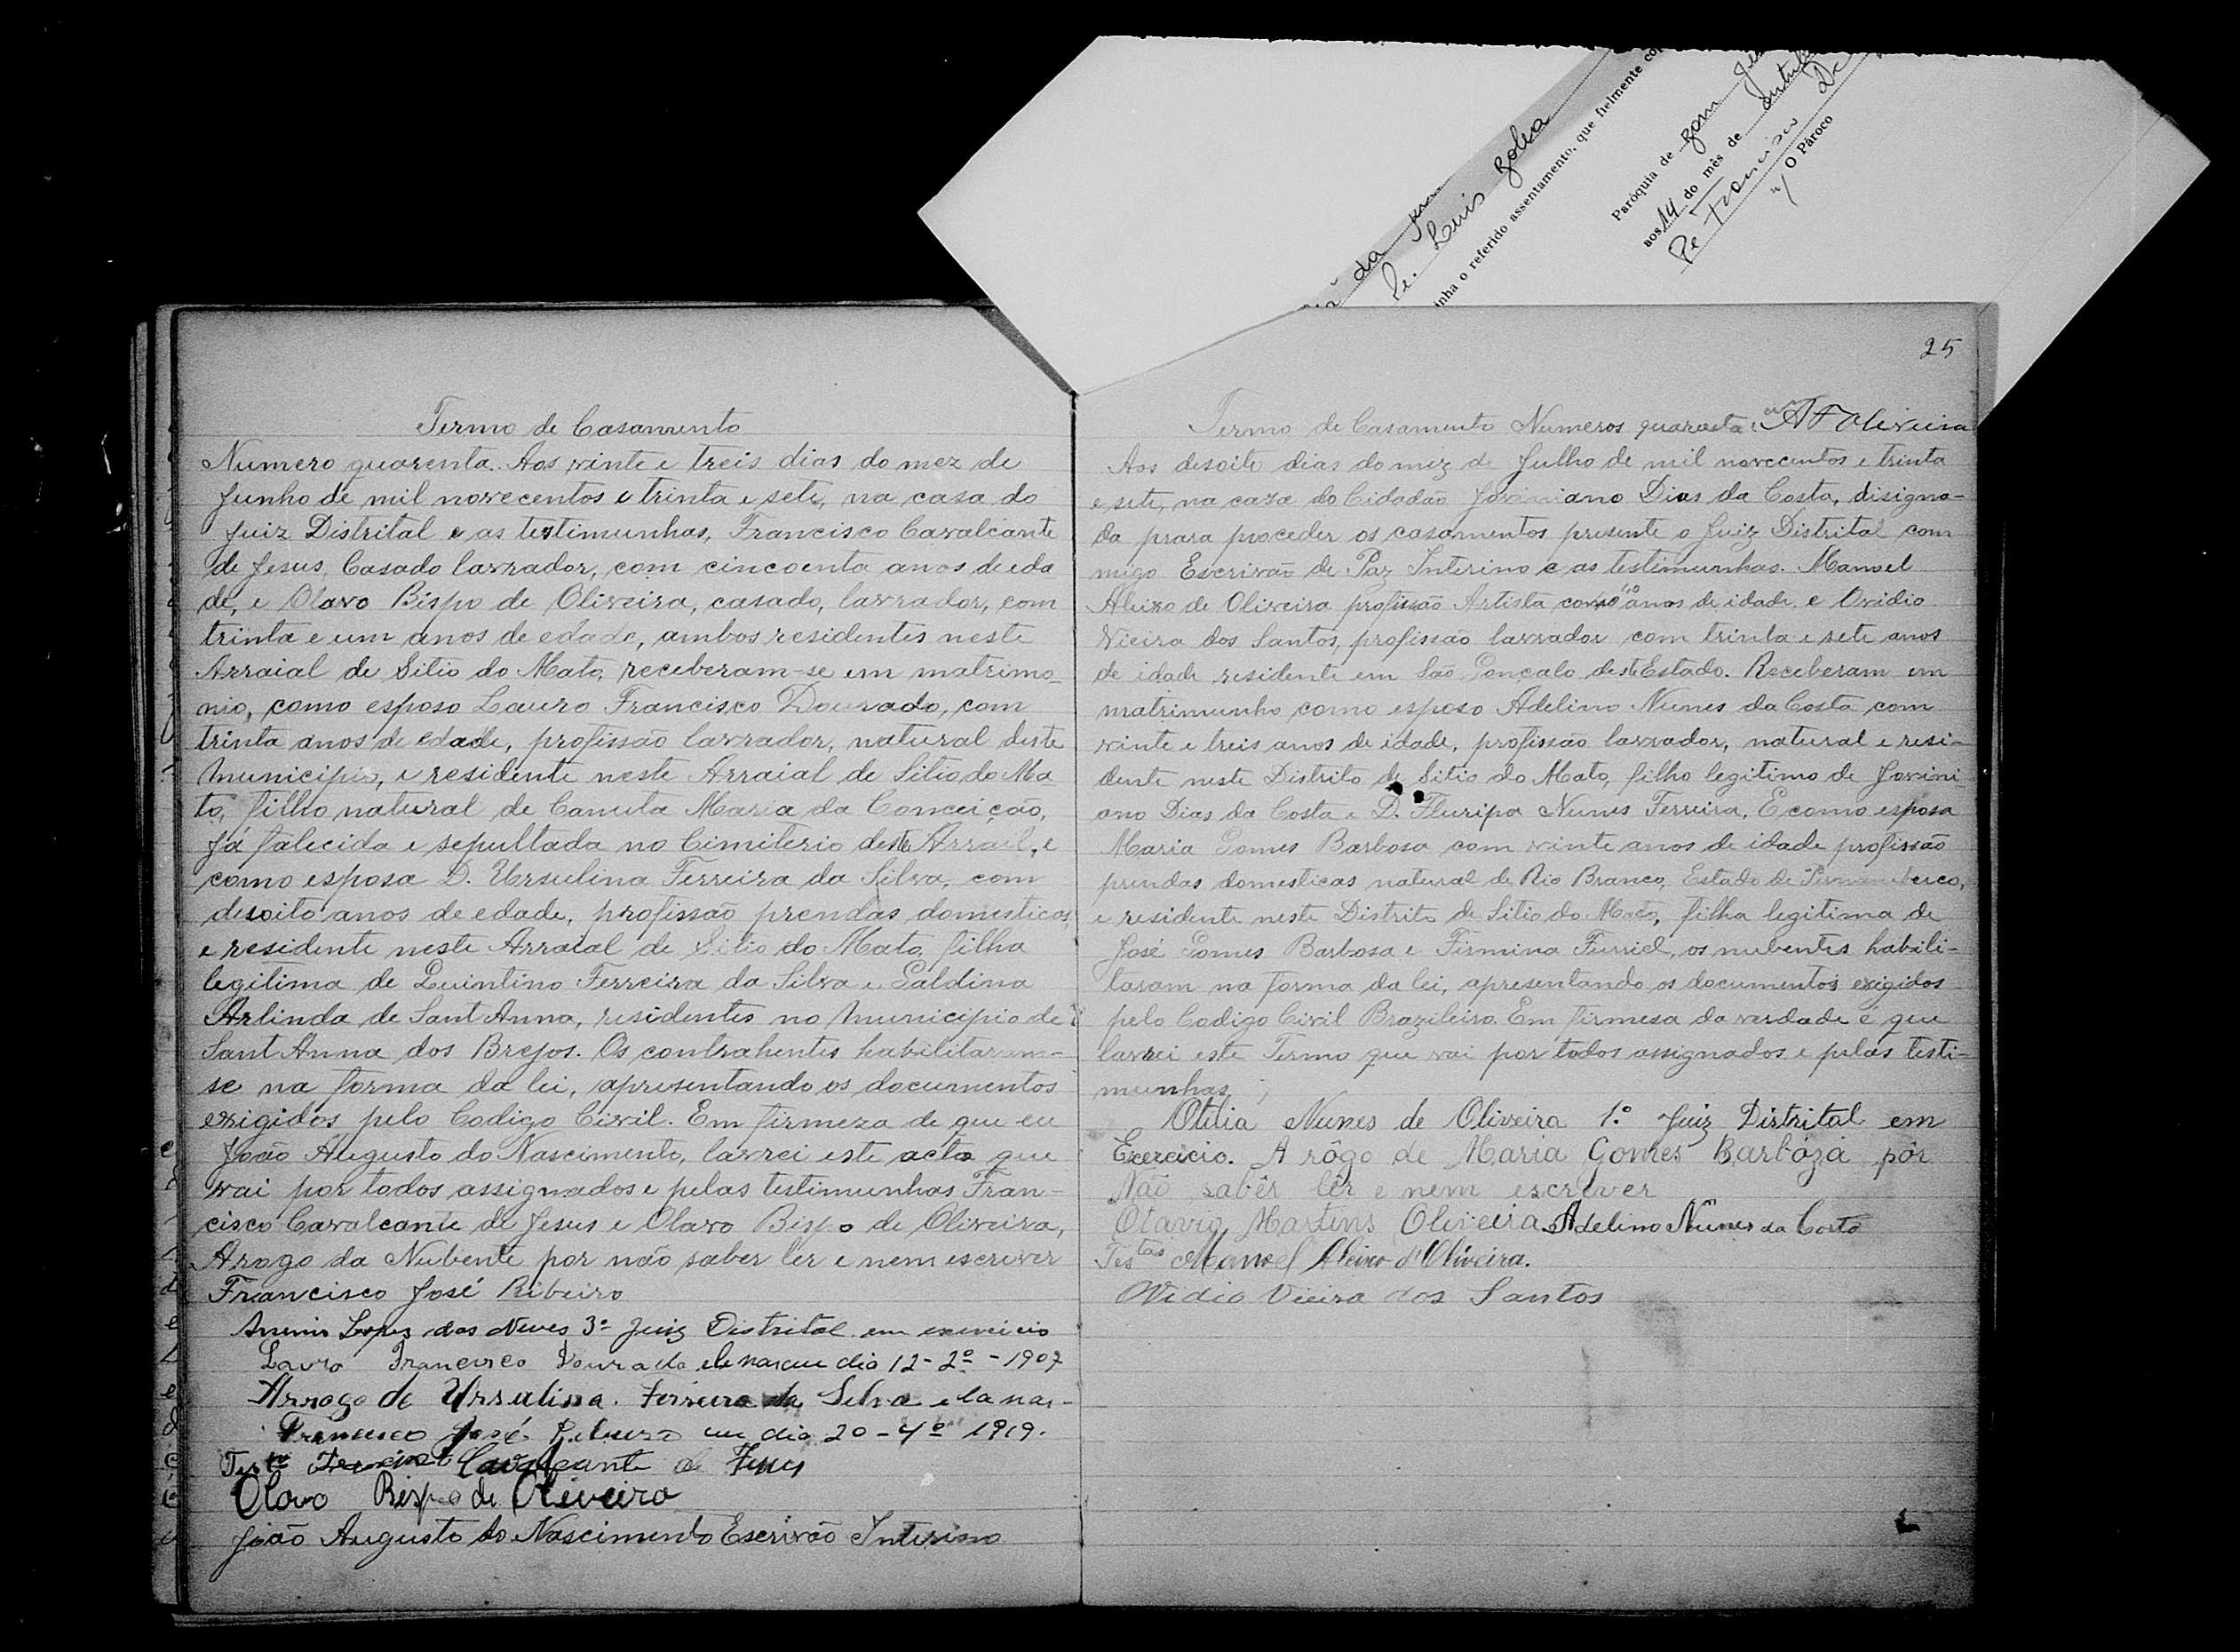 da
Pe. Luis
inha o referido assentamento, que fielmente
Paróquia de Bom
aos 14 do mês de
Pe Francisco
O Pároco
Termo de Casamento
Numero quarenta. Aos vinte e treis dias do mez de
Junho de mil novecentos e trinta e sete, na casa do
Juiz Distrital e as testimunhas, Francisco Cavalcante
de Jesus, Casado lavrador, com cincoenta anos de eda
de, e Olavo Bispo de Oliveira, casado, lavrador, com
trinta e um anos de edade, ambos residentes neste
Arraial de Sitio do Mato, receberam-se em matrimo-
nio, como esposo Lauro Francisco Dourado, com
trinta anos de edade, profissão lavrador, natural deste
Municipio, e residente neste Arraial de Sitio do Ma-
to, filho natural de Canuta Maria da Conceição,
já falecida e sepultada no Cimiterio deste Arrael, e
como esposa D. Ursulina Ferreira da Silva, com
desoito anos de edade, profissão prendas domesticas,
e residente neste Arraial de Sitio do Mato, filha
legitima de Quintino Ferreira da Silva e Galdina
Arlinda de Sant Anna, residentes no Municipio de
Sant Anna dos Brejos. Os contrahentes habilitaram-
se na forma da lei, apresentando os documentos
exigidos pelo Codigo Civil. Em firmeza de que eu
João Augusto do Nascimento, lavrei este acto que
vai por todos assignados e pelas testimunhas Fran-
cisco Cavalcante de Jesus e Olavo Bispo de Oliveira,
Arogo da Nubente por não saber ler e nem escrever
Francisco José Ribeiro
Lopes das Neves 3º Juiz Distrital em exercicio
Lauro Francisco Dourado ele nasceu dia 12-2º-1907
Arrogo de Ursulina Ferreira da Silva ela nas-
Francisco José Ribeiro eu dia 20-4º 1919.
Testº Francisco Cavalcante de Jesus
Olavo Bispo de Oliveira
João Augusto do Nascimento Escrivão Interino
25
Termo de Casamento Numeros quarenta e um A F Oliveira
Aos desoito dias do mez de Julho de mil novecentos e trinta
e sete, na caza do Cidadão Joviniano Dias da Costa, disigna-
da prara proceder os casamentos presente o Juiz Distrital com
migo Escrivão de Paz Interino e as testimunhas. Manoel
Aleixo de Oliveira profissão Artista com anos de idade, e Ovidio
Vieira dos Santos, profissão lavrador com trinta e sete anos
de idade residente em São Gonçalo deste Estado. Receberam em
matrimunho como esposo Adelino Nunes da Costa com
vinte e treis anos de idade, profissão lavrador, natural e resi-
dente neste Distrito de Sitio do Mato, filho legitimo de Jovini
ano Dias da Costa e D. Fluripa Nunes Ferreira. E como esposa
Maria Gomes Barbosa com vinte anos de idade profissão
prendas domesticas natural de Rio Branco, Estado de Pernambuco,
e residente neste Distrito de Sitio do Mato, filha legitima de
José Gomes Barbosa e Firmina Furriel, os nubentes habili-
taram na forma da lei, apresentando os documentos exigidos
pelo Codigo Civil Brazileiro. Em firmesa da verdade é que
lavrei este Termo que vai por todos assignados e pelas testi-
munhas;
Otilia Nunes de Oliveira 1.º Juiz Distrital em
Exercicio. A rôgo de Maria Gomes Barbóza pôr
Não sabêr lêr e nem escrever
Otavio Martins Oliveira Adelino Nunes da Costa
Testas Manoel Aleixo d'Oliveira.
Ovidio Vieira dos Santos